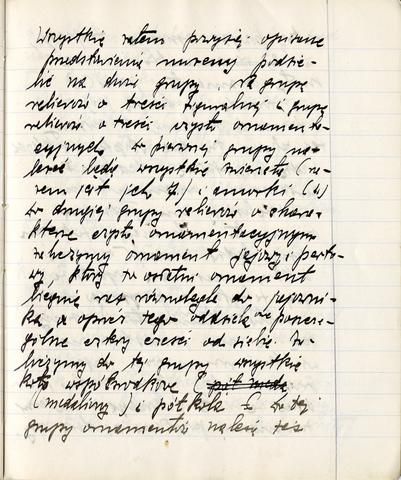 Wszystkie zatem powyżej opisane
przedstawienia możemy podzie-
lić na dwie grupy. Na grupę
reliefów o treści figuralnej i grupę
reliefów o treści czysto ornamenta-
cyjnych. W pierwszej grupy na-
leżeć będą wszystkie zwierzęta (ra-
zem jest ich 7) i amorki (4)
w drugiej grupy reliefów o chara-
kterze czysto ornamentacyjnym
zaliczymy ornament jajowy i perło-
wy, który to ostatni ornament
biegnie wraz równolegle do jajowni-
ka, a oprócz tego oddziela poszcze-
gólne cztery części od siebie. Za-
liczymy do tej grupy wszystkie
koła współśrodkowe (pół meda
(medaliony) i półkola. Do tej
grupy ornamentów należą też